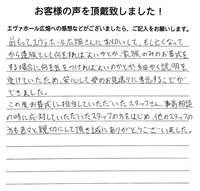 お客様の声を頂戴致しました！
エヴァホール広畑への感想などがございましたら、ご記入をお願いします。
前もってエヴァホール広畑さんにお伺いして、もし亡くなって
から遺族として何をすればよいかとか、家族のみのお葬式を
する場合に何を注意をつければよいのかとか細かく説明を
受けていたため、安心して父のお見送りに専念することが
できました。
この度お葬式に担当していただいたスタッフさん、事前相談
の時に応対していただいたスタッフの方をはじめ、他のスタッフの
方も色々と親切にして頂き誠にありがとうございました。